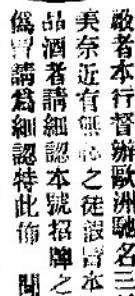 敬者本行督辦歐洲馳名三
美奈近有無恥之徒設冒本
品酒者請細認本號招牌之
僞冒請爲細認特此佈 聞